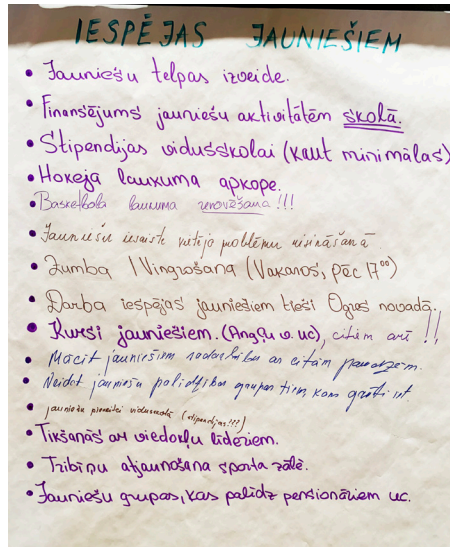 IESPĒJAS JAUNIEŠIEM
• Jauniešu telpas izveide.
• Finansējums jauniešu aktivitātēm skolā.
• Stipendijas vidusskolai (kaut minimālas)
• Hokeja laukuma apkope.
• Basketbola laukuma renovēšana!!!
• Jauniešu iesaiste vietējo problēmu risināšanā
• Zumba / Vingrošana (Vakaros, pēc 17⁰⁰)
• Darba iespējas jauniešiem tieši Ogres novadā.
• Kursi jauniešiem. (Angļu v. uc), citiem arī !!
• Mācīt jauniešiem sadarbību ar citām paaudzēm.
• Veidot jauniešu palīdzības grupas tiem, kam grūti iet.
• jauniešu piesaistei vidusskolā (stipendijas!!!)
• Tikšanās ar viedokļu līderiem.
• Tribīņu atjaunošana sporta zālē.
• Jauniešu grupas, kas palīdz pensionāriem uc.